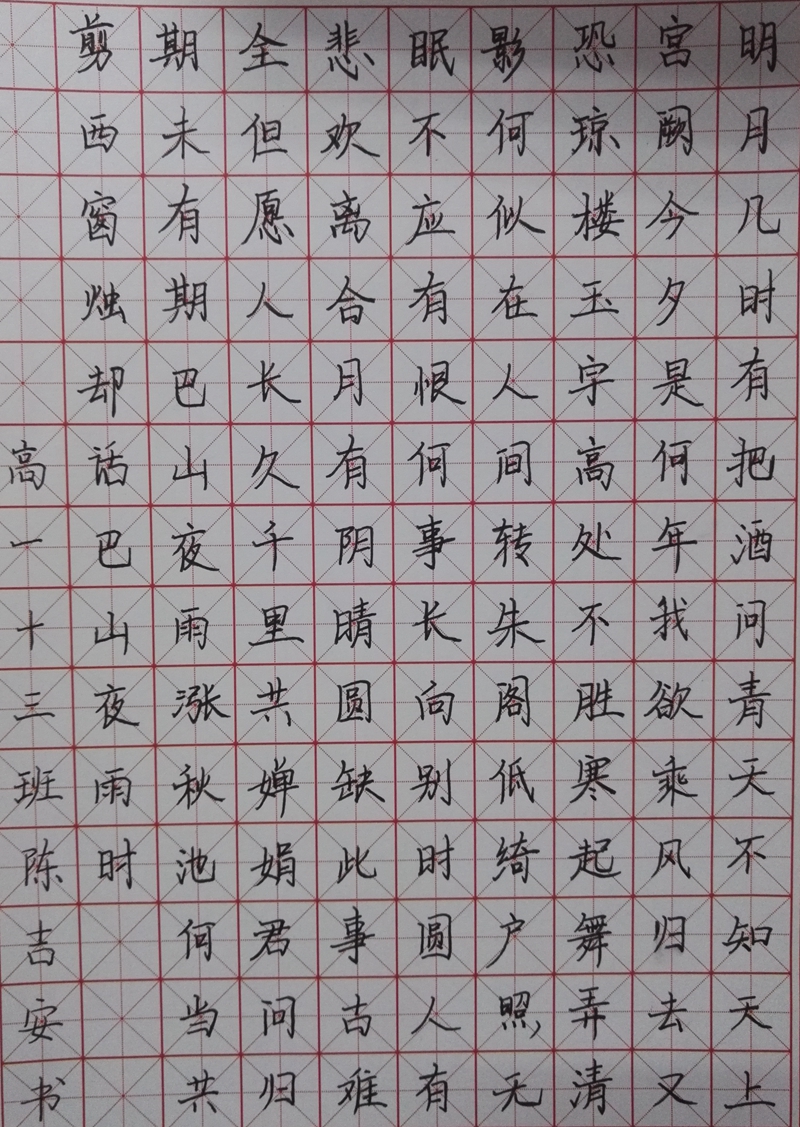 明月几时有把酒问青天不知天上
宫阙今夕是何年我欲乘风归去又
恐琼楼玉宇高处不胜寒起舞弄清
影何似在人间转朱阁低绮户照,无
眠不应有恨何事长向别时圆人有
悲欢离合月有阴晴圆缺此事古难
全但愿人长久千里共婵娟君问归
期未有期巴山夜雨涨秋池何当共
剪西窗烛却话巴山夜雨时
高一十三班陈吉安书